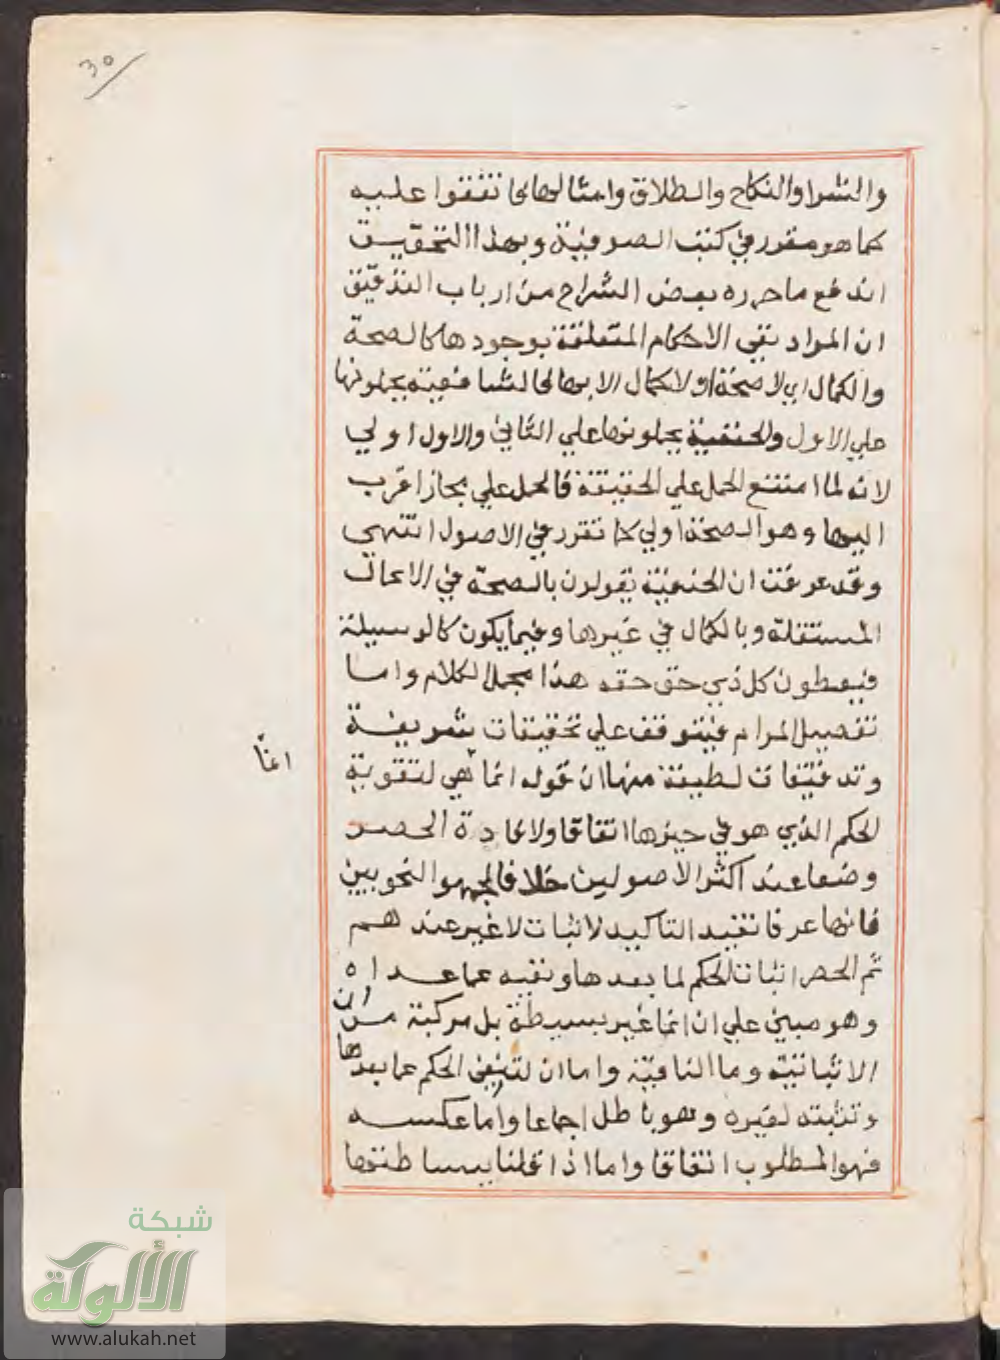 30
والشرا والنكاح والطلاق وامثالها مما تفقوا عليه
كما هو مقرر في كتب الصوفية وبهذا التحقيق
اندفع ما حرره بعض الشراح من ارباب التدقيق
ان المراد نفي الاحكام المتعلقة بوجودها كالصحة
والكمال اي لا صحة او لا كمال الا بها فالشافعية يحملونها
علي الاول والحنفية يحملونها علي الثاني والاول اولي
لانه لما امتنع الحمل علي الحقيقة فالحمل علي مجاز اقرب
اليها وهو الصحة اولي كما تقرر في الاصول انتهي
وقد عرفت ان الحنفية يقولون بالصحة في الاعمال
المستقلة وبالكمال في غيرها وفيما يكون كالوسيلة
فيعطون كل ذي حق حقه هذا مجمل الكلام واما
تفصيل المرام فيتوقف علي تحقيقات شريفة
وتدقيقات لطيفة منها ان قوله انما هي لتقوية
انما
الحكم الذي هو في حيزها اتفاقا ولافادة الحصر
وضعا عند اكثر الاصوليين خلافا لجمهور النحويين
فانها عرفا تفيد التاكيد لاثبات لا غير عندهم
ثم الحصر اثبات الحكم لما بعدها ونفيه عما عداه
وهو مبني علي ان انما غير بسيطة بل مركبة من ان
الاثباتية وما النافية واما ان لتنفي الحكم عما بعدها
وتثبته لغيره وهو باطل اجماعا واما عكسه
فهو المطلوب اتفاقا واما اذا قلنا ببساطتها
شبكة
الألوكة
www.alukah.net